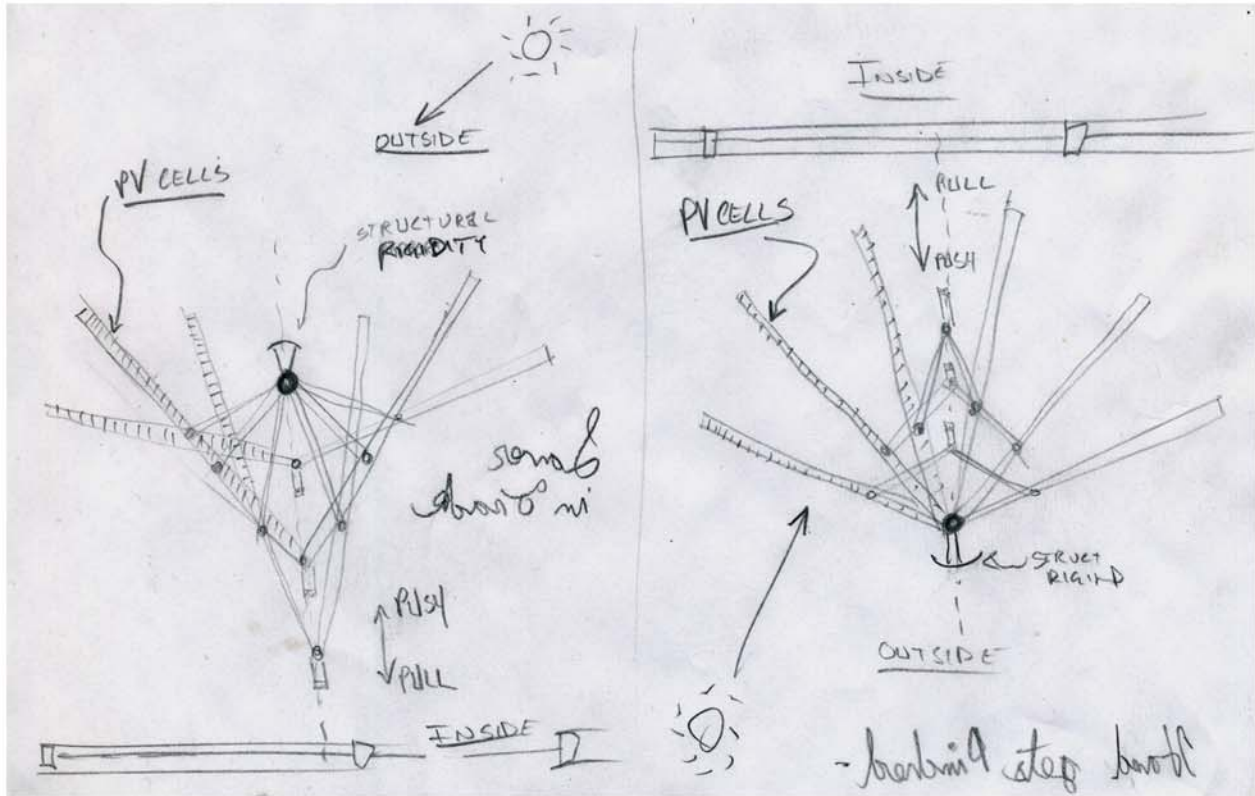 OUTSIDE
PV CELLS
STRUCTURAL
RIGIDITY
in
PUSH
PULL
INSIDE
INSIDE
PULL
PUSH
PV CELLS
STRUCT
RIGID
OUTSIDE
Hand gets Pinched -